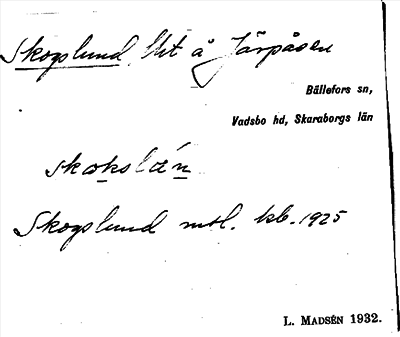 Skogslund lht å Järpåsen
Bällefors sn,
Vadsbo hd, Skaraborgs län
skɑkslán
Skogslund mtl. kb. 1925
L. MADSÉN 1932.